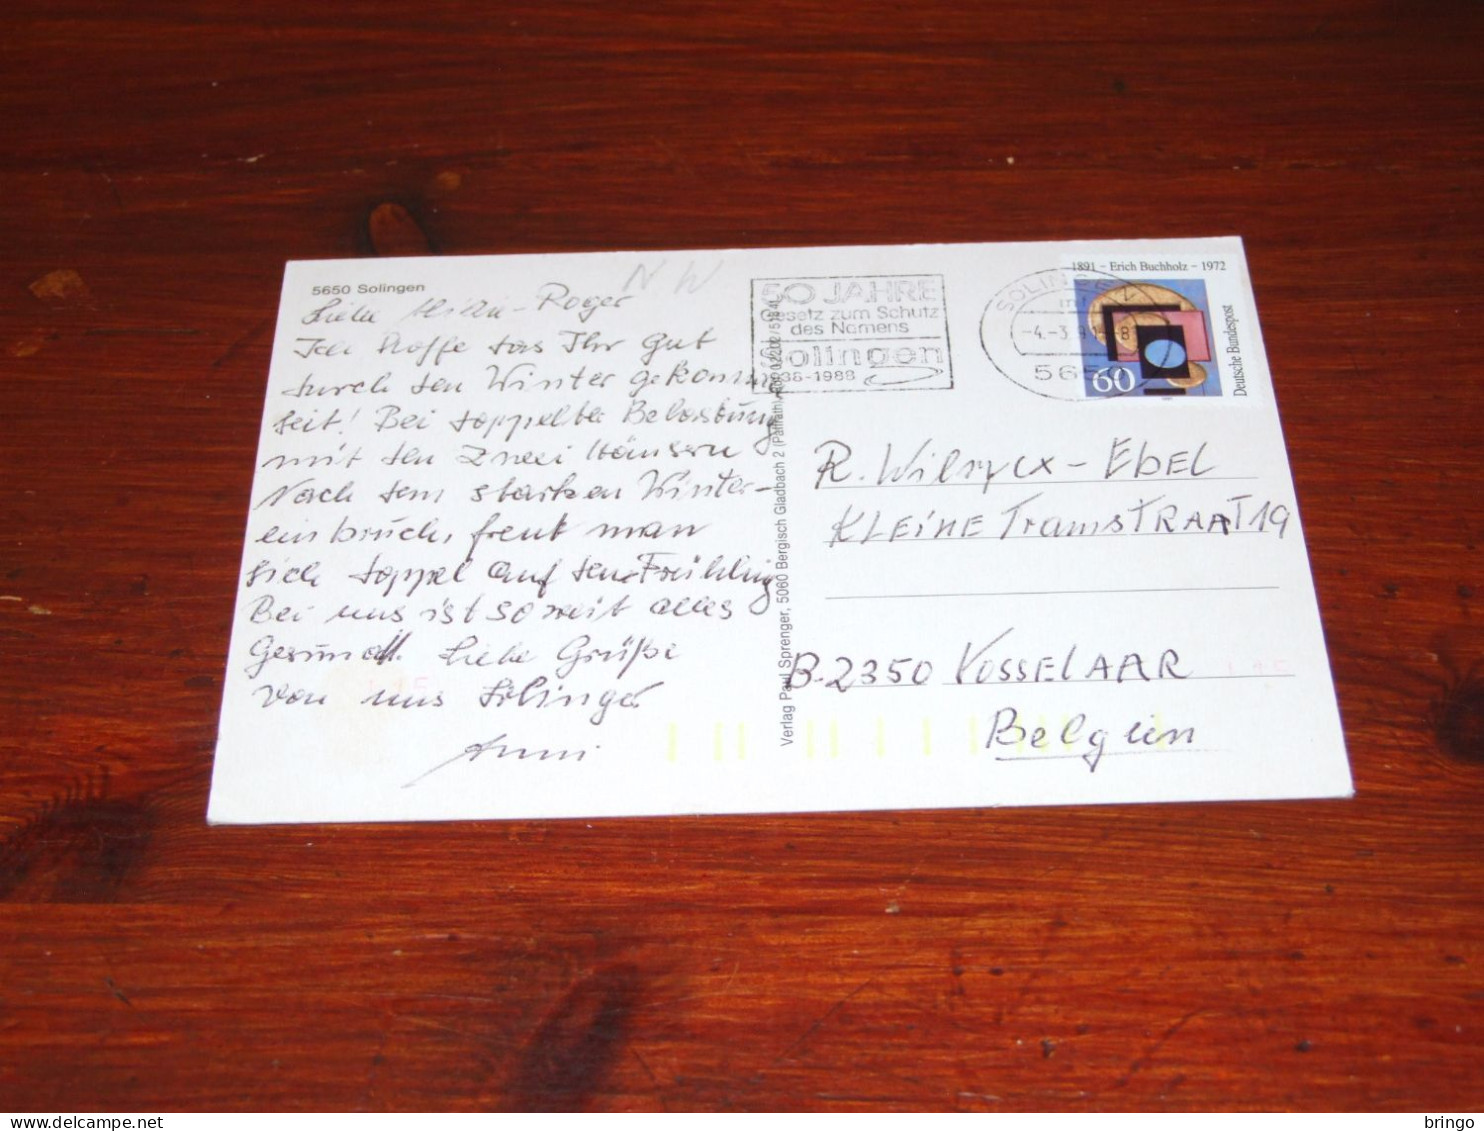 5650 Solingen
NW
Liebe - Roger
Ich Hoffe das Ihr Gut
durch den Winter gekomm
seit! Bei doppelter Belastung
mit den Zwei Häusern
Nach dem starken Winter-
einbruch, freut man
sich doppel auf den Frühling
Bei uns ist soweit alles
Gesund. Liebe Grüße
von uns Solinger
Anni
Verlag Paul Sprenger, 5060 Bergisch Gladbach 2 (Paffrath)
50 JAHRE
Gesetz zum Schutz
des Namens
Solingen
1938-1988
SOLINGEN
-4.-3.
5650
1891 - Erich Buchholz - 1972
Deutsche Bundespost
60
R. Wilrycx - EBEL
KLEINE TramSTRAAT 19
B-2350 VOSSELAAR
Belgien
bringo